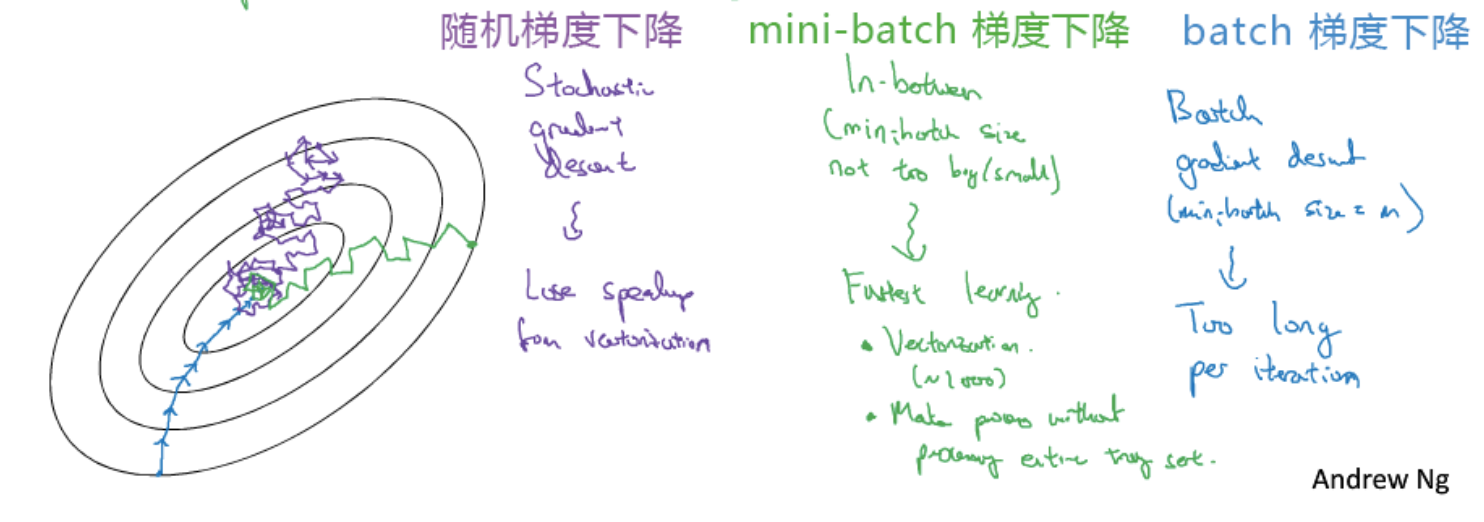 随机梯度下降
Stochastic
gradient
descent
Lose speedup
from vectorization
mini-batch 梯度下降
In-between
(mini-batch size
not too big/small)
Fastest learning.
• Vectorization.
(~1000)
• Make progress without
processing entire training set.
batch 梯度下降
Batch
gradient descent
(mini-batch size = m)
Too long
per iteration
Andrew Ng